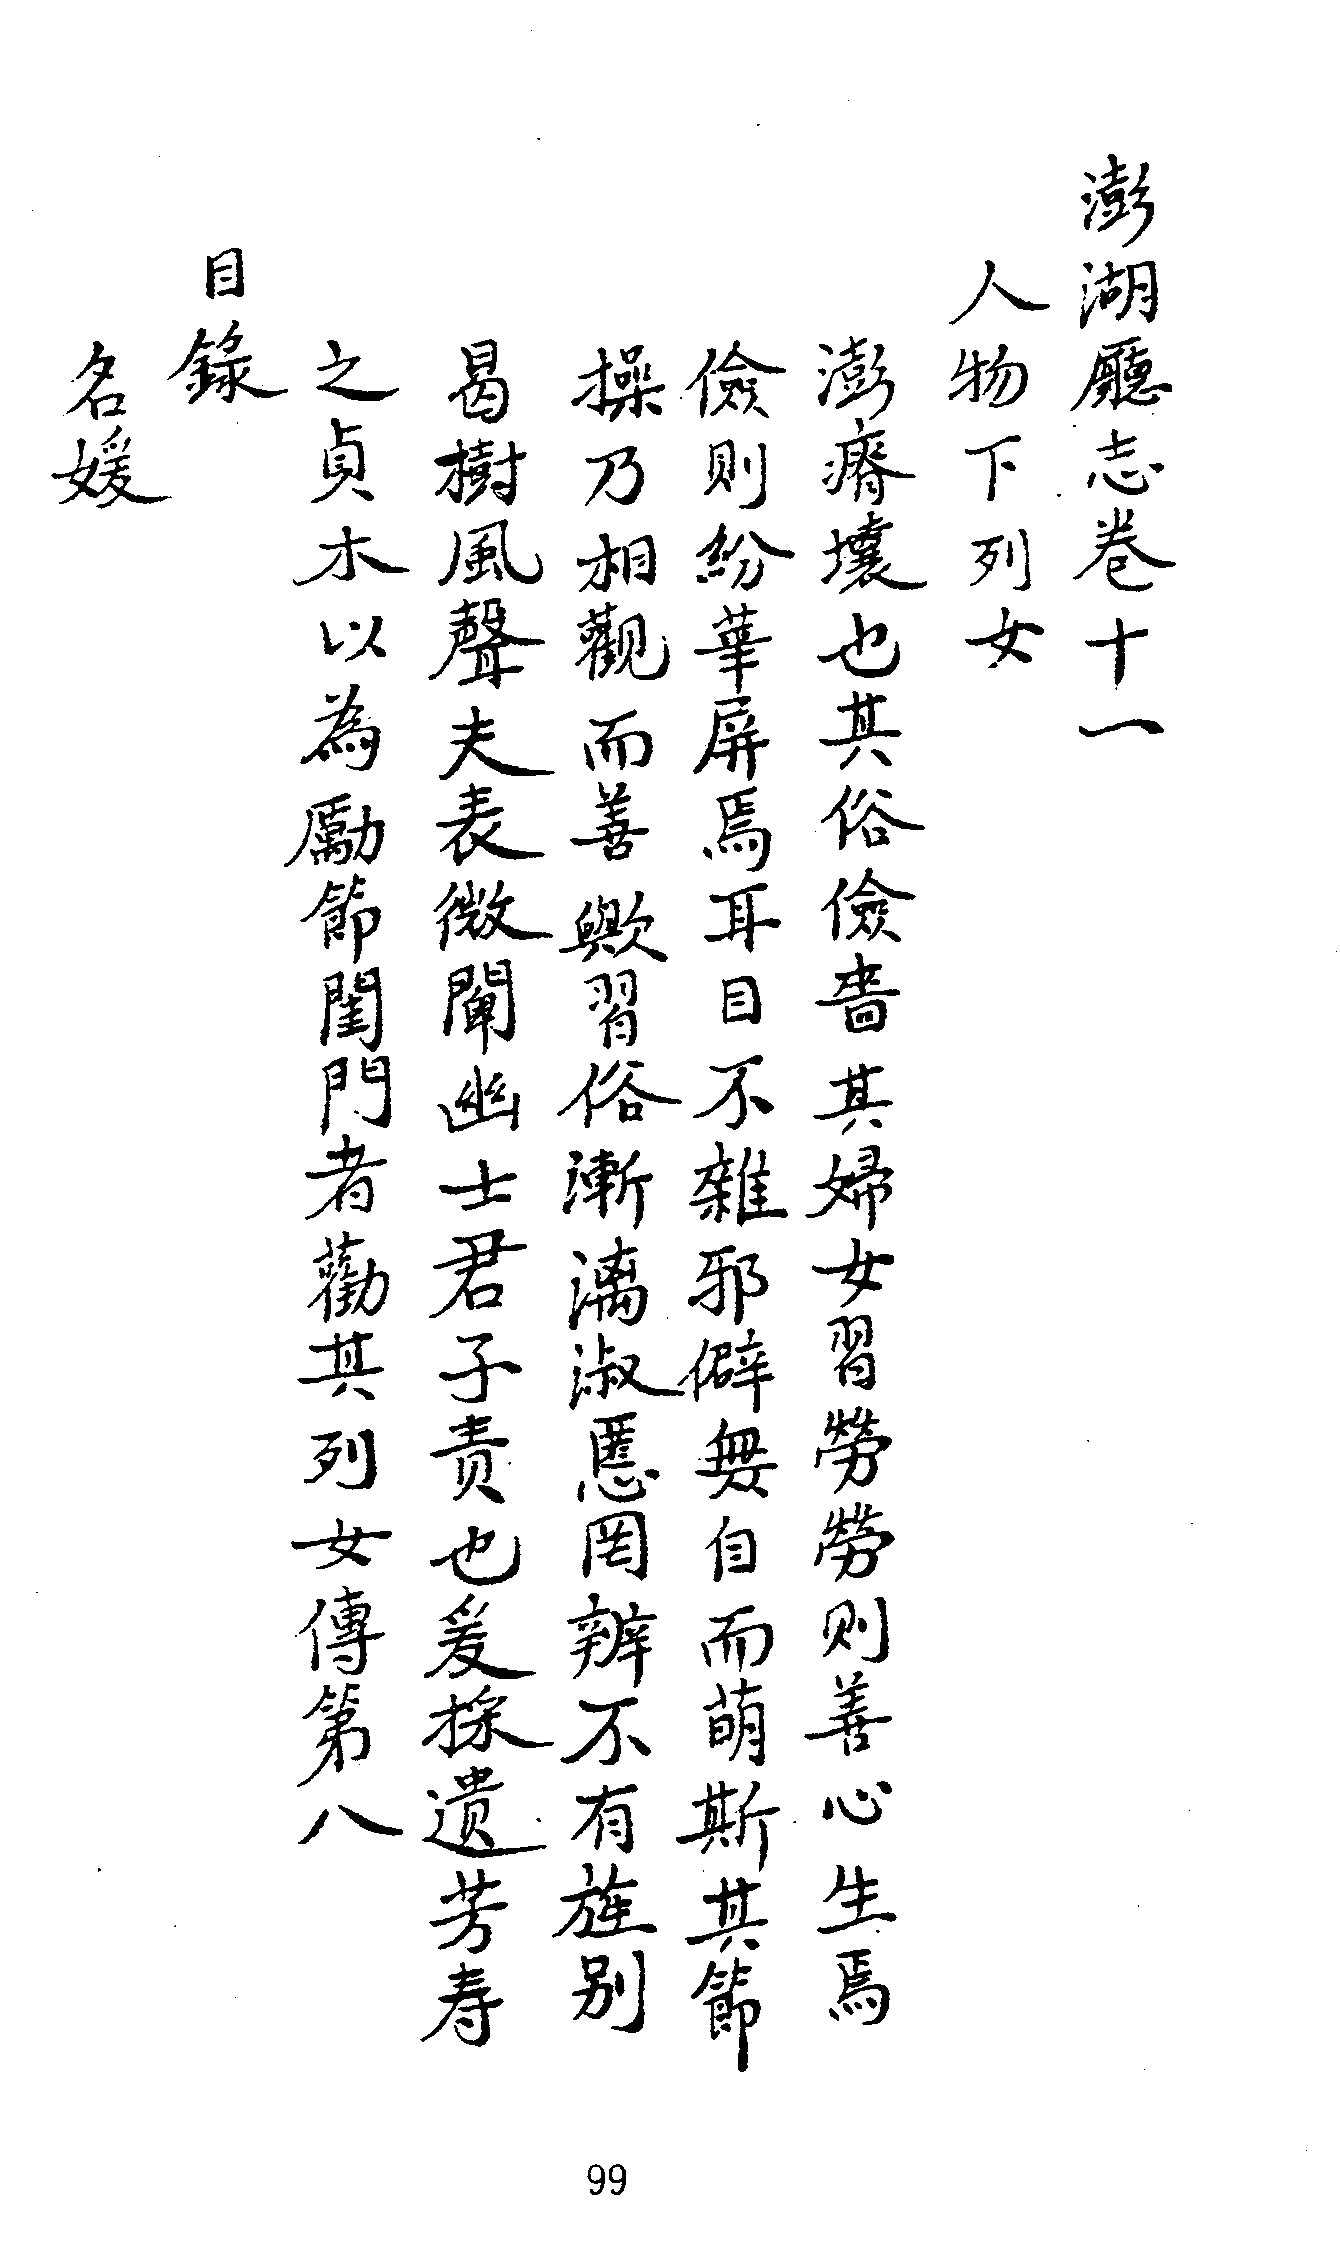 澎湖廳志卷十一
人物下列女
澎瘠壤也其俗儉嗇其婦女習勞勞則善心生焉
儉則紛華屏焉耳目不雜邪僻無自而萌斯其節
操乃相觀而善歟習俗漸漓淑慝罔辨不有旌别
曷樹風聲夫表微闡幽士君子责也爰採遗芳寿
之貞木以為勵節閨門者勸其列女傳第八
目錄
名媛
99